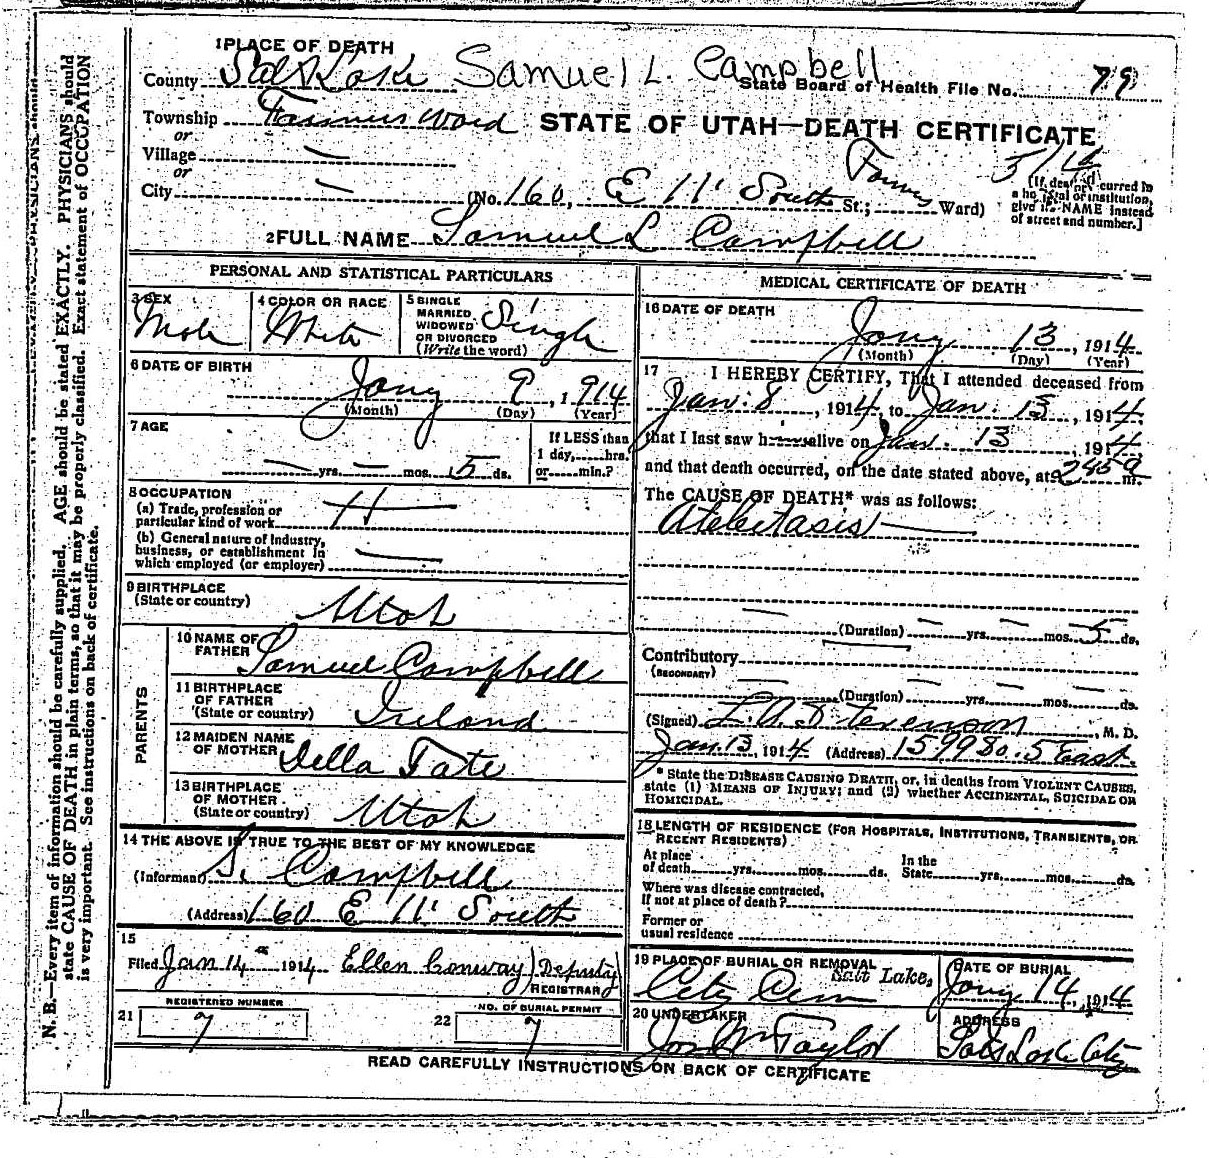 1 PLACE OF DEATH
County Salt Lake Samuel L. Campbell
State Board of Health File No. 79
Township Farmers Ward STATE OF UTAH—DEATH CERTIFICATE
or
Village —
or
City — (No. 160, E 11' South St.; Farmers Ward)
[If death occurred in
a hospital or institution,
give its NAME instead
of street and number.]
2 FULL NAME Samuel L Campbell
PERSONAL AND STATISTICAL PARTICULARS
3 SEX
Male
4 COLOR OR RACE
White
5 SINGLE
MARRIED
WIDOWED
OR DIVORCED
(Write the word)
Single
6 DATE OF BIRTH
Jany 9, 1914
(Month) (Day) (Year)
7 AGE
— yrs. — mos. 5 ds.
If LESS than
1 day, hrs.
or min.?
8 OCCUPATION
(a) Trade, profession or
particular kind of work
(b) General nature of industry,
business, or establishment in
which employed (or employer) —
9 BIRTHPLACE
(State or country) Utah
PARENTS
10 NAME OF
FATHER Samuel Campbell
11 BIRTHPLACE
OF FATHER
(State or country) Ireland
12 MAIDEN NAME
OF MOTHER Della Tate
13 BIRTHPLACE
OF MOTHER
(State or country) Utah
14 THE ABOVE IS TRUE TO THE BEST OF MY KNOWLEDGE
(Informant) S. Campbell
(Address) 160 E 11' South
15
Filed Jan 14 1914 Ellen Conway Deputy
REGISTRAR
REGISTERED NUMBER
21 7
NO. OF BURIAL PERMIT
22 7
MEDICAL CERTIFICATE OF DEATH
16 DATE OF DEATH
Jany 13, 1914
(Month) (Day) (Year)
17 I HEREBY CERTIFY, That I attended deceased from
Jan. 8, 1914, to Jan. 13, 1914
that I last saw h alive on Jan. 13 1914
and that death occurred, on the date stated above, at m.
The CAUSE OF DEATH* was as follows:
Atelectasis
(Duration) — yrs. — mos. 5 ds.
Contributory
(SECONDARY)
(Duration) — yrs. — mos. — ds.
(Signed) L. A. Stevenson, M. D.
Jan. 13, 1914 (Address) 1599 So. 5 East.
* State the DISEASE CAUSING DEATH, or, in deaths from VIOLENT CAUSES,
state (1) MEANS OF INJURY; and (2) whether ACCIDENTAL, SUICIDAL OR
HOMICIDAL.
18 LENGTH OF RESIDENCE (FOR HOSPITALS, INSTITUTIONS, TRANSIENTS, OR
RECENT RESIDENTS)
At place
of death yrs. mos. ds.
In the
State yrs. mos. ds.
Where was disease contracted,
If not at place of death?
Former or
usual residence
19 PLACE OF BURIAL OR REMOVAL
City Cem Salt Lake,
DATE OF BURIAL
Jany 14, 1914
20 UNDERTAKER
Jos Wm Taylor
ADDRESS
Salt Lake City
READ CAREFULLY INSTRUCTIONS ON BACK OF CERTIFICATE
N. B.—Every item of information should be carefully supplied. AGE should be stated EXACTLY. PHYSICIANS should
state CAUSE OF DEATH in plain terms, so that it may be properly classified. Exact statement of OCCUPATION
is very important. See instructions on back of certificate.